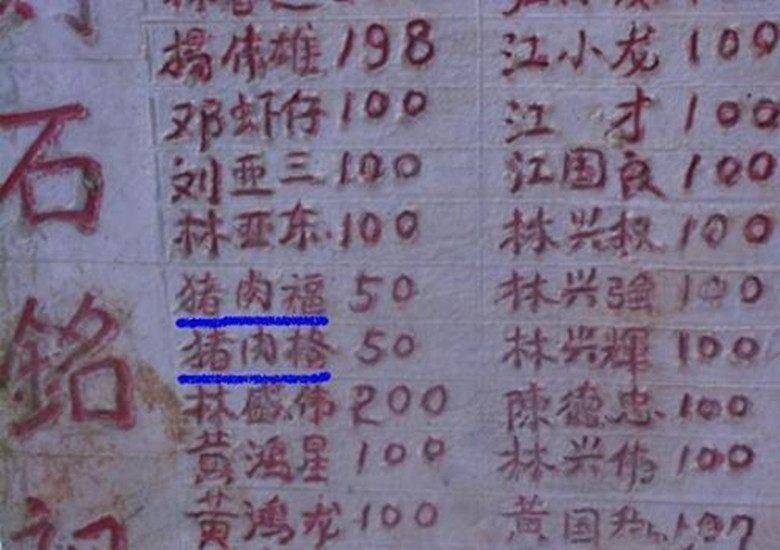 石
銘
揚伟雄 198
邓虾仔 100
刘亚三 100
林亚东 100
猪肉福 50
猪肉格 50
林盛伟 200
黄鸿星 100
黄鸿龙 100
江小龙 100
江 才 100
江国良 100
林兴权 100
林兴強 100
林兴輝 100
陳德忠 100
林兴伟 100
黄国